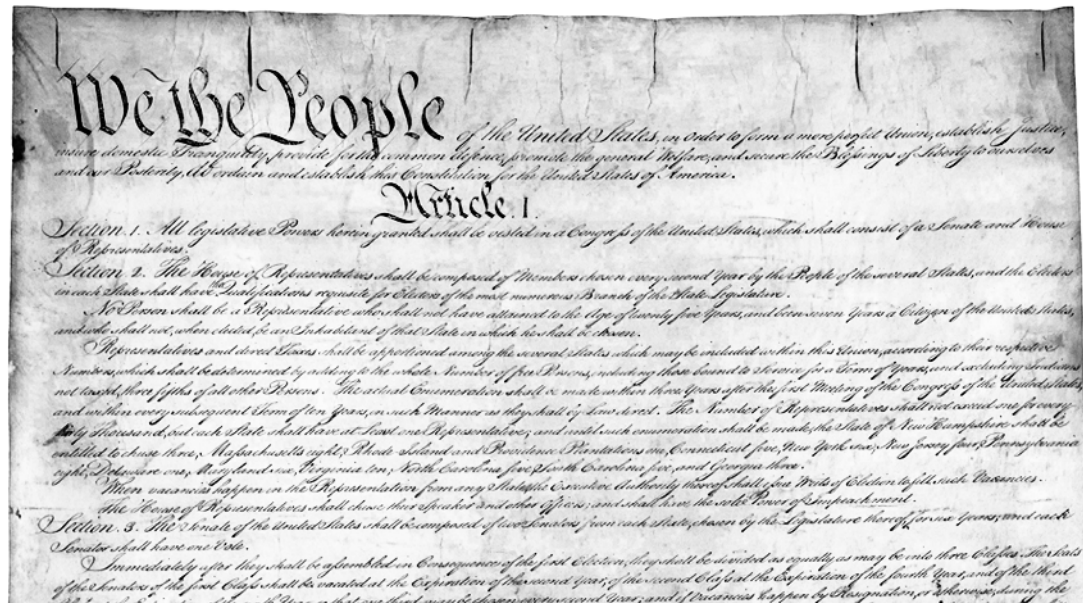 We the People of the United States, in Order to form a more perfect Union, establish Justice,
insure domestic Tranquility, provide for the common defence, promote the general Welfare, and secure the Blessings of Liberty to ourselves
and our Posterity, do ordain and establish this Constitution for the United States of America.
Article. I.
Section. 1. All legislative Powers herein granted shall be vested in a Congress of the United States, which shall consist of a Senate and House
of Representatives.
Section. 2. The House of Representatives shall be composed of Members chosen every second Year by the People of the several States, and the Electors
in each State shall have the Qualifications requisite for Electors of the most numerous Branch of the State Legislature.
No Person shall be a Representative who shall not have attained to the Age of twenty five Years, and been seven Years a Citizen of the United States,
and who shall not, when elected, be an Inhabitant of that State in which he shall be chosen.
Representatives and direct Taxes shall be apportioned among the several States which may be included within this Union, according to their respective
Numbers, which shall be determined by adding to the whole Number of free Persons, including those bound to Service for a Term of Years, and excluding Indians
not taxed, three fifths of all other Persons. The actual Enumeration shall be made within three Years after the first Meeting of the Congress of the United States,
and within every subsequent Term of ten Years, in such Manner as they shall by Law direct. The Number of Representatives shall not exceed one for every
thirty Thousand, but each State shall have at Least one Representative; and until such enumeration shall be made, the State of New Hampshire shall be
entitled to chuse three, Massachusetts eight, Rhode Island and Providence Plantations one, Connecticut five, New York six, New Jersey four, Pennsylvania
eight, Delaware one, Maryland six, Virginia ten, North Carolina five, South Carolina five, and Georgia three.
When vacancies happen in the Representation from any State, the Executive Authority thereof shall issue Writs of Election to fill such Vacancies.
The House of Representatives shall chuse their Speaker and other Officers; and shall have the sole Power of Impeachment.
Section. 3. The Senate of the United States shall be composed of two Senators from each State, chosen by the Legislature thereof, for six Years; and each
Senator shall have one Vote.
Immediately after they shall be assembled in Consequence of the first Election, they shall be divided as equally as may be into three Classes. The Seats
of the Senators of the first Class shall be vacated at the Expiration of the second Year, of the second Class at the Expiration of the fourth Year, and of the third
Year, so that one third may be chosen every second Year; and if Vacancies happen by Resignation, or otherwise, during the